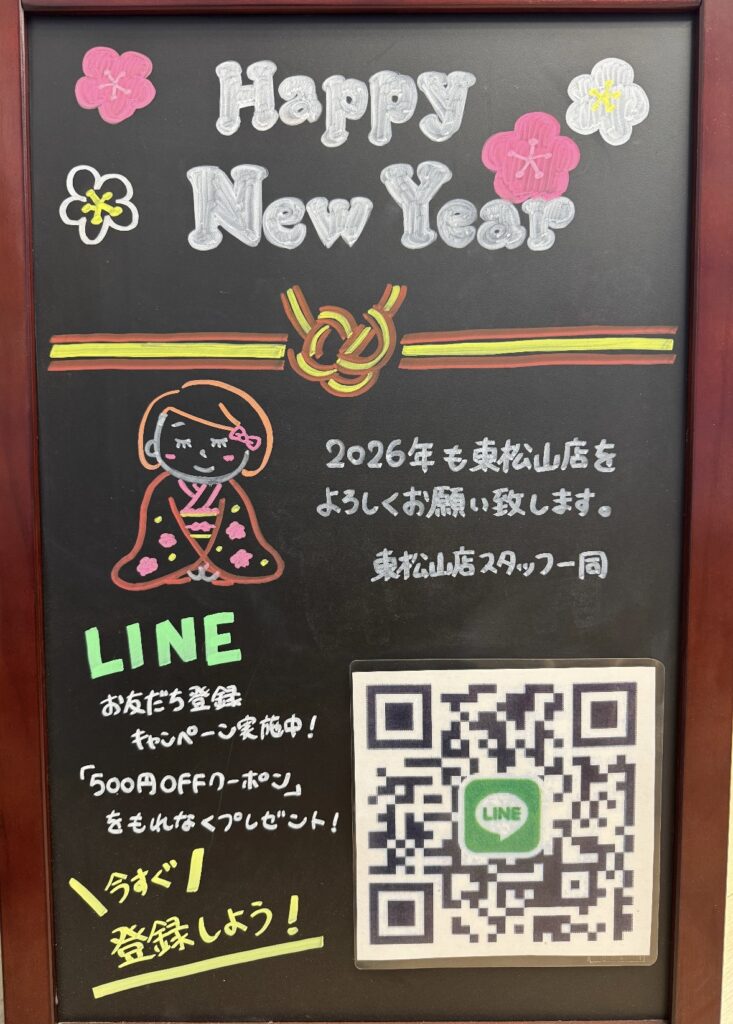 Happy
New Year
2026年も東松山店を
よろしくお願い致します。
東松山店スタッフ一同
LINE
お友だち登録
キャンペーン実施中！
「500円OFFクーポン」
をもれなくプレゼント！
今すぐ
登録しよう！
LINE